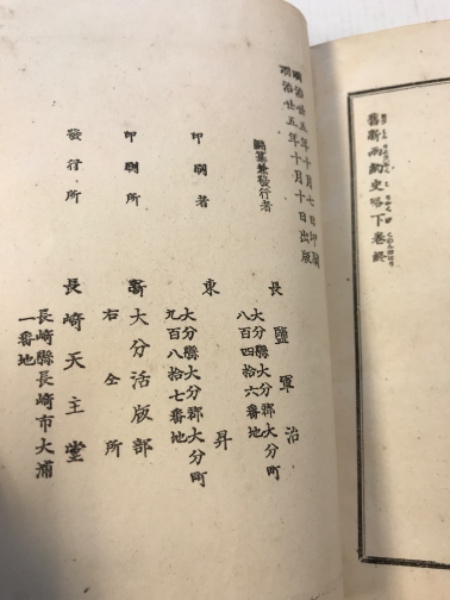 舊新兩約史略下卷終
明治廿五年十月七日印刷
明治廿五年十月十日出版
編纂兼發行者
長鹽軍治
大分縣大分郡大分町
八百四拾六番地
印刷者
東昇
大分縣大分郡大分町
九百八拾七番地
印刷所
新大分活版部
右仝所
發行所
長崎天主堂
長崎縣長崎市大浦
一番地